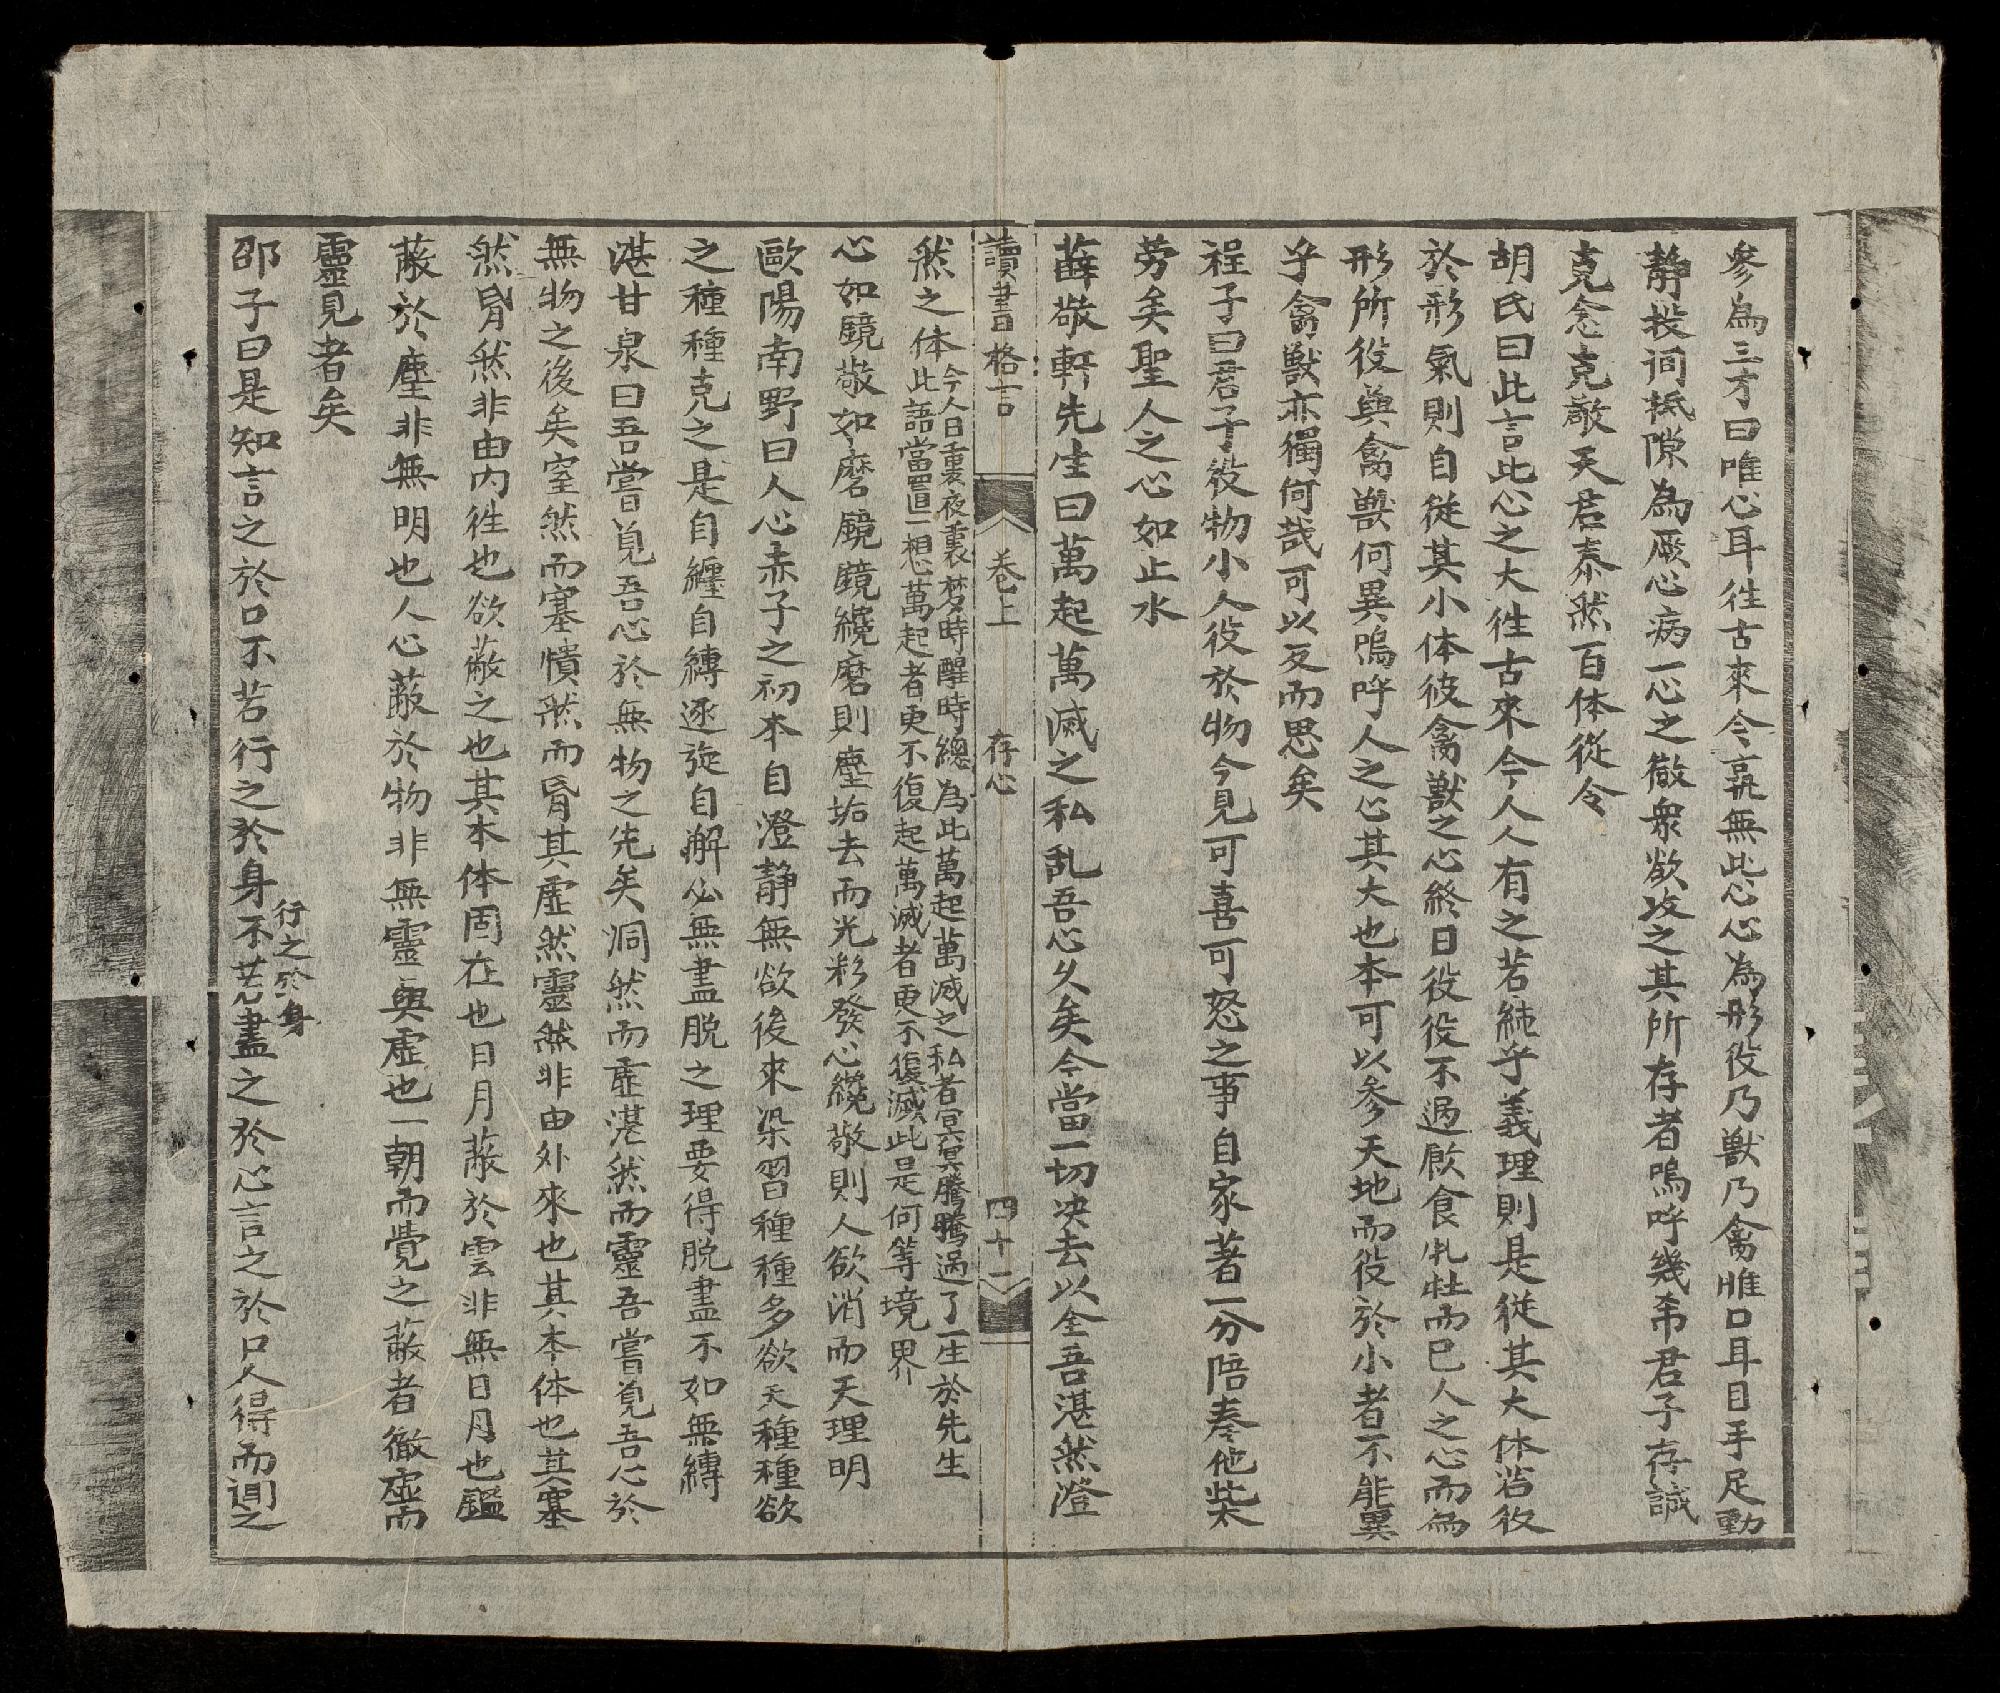 參為三才曰唯心耳徃古來今孰無此心心為形役乃獸乃禽惟口耳目手足動
靜投間抵隙為厥心病一心之微衆欲攻之其所存者嗚呼幾希君子存誠
克念克敬天君泰然百体從令
胡氏曰此言此心之大徃古來今人人有之若純乎義理則是從其大体若役
於形氣則自從其小体彼禽獸之心終日役役不過飲食牝牡而已人之心而為
形所役與禽獸何異嗚呼人之心其大也本可以參天地而役於小者不能異
乎禽獸亦獨何哉可以反而思矣
程子曰君子役物小人役於物今見可喜可怒之事自家著一分陪奉他柴
勞矣聖人之心如止水
薛敬軒先生曰萬起萬滅之私乱吾心久矣今當一切决去以全吾湛然澄
讀書格言 卷上 存心 四十一
然之体今人日裏夜裏梦時醒時總為此萬起萬滅之私者冥冥騰騰過了一生於先生
此語當置一想萬起者更不復起萬滅者更不復滅此是何等境界
心如鏡敬如磨鏡鏡纔磨則塵垢去而光彩發心纔敬則人欲消而天理明
歐陽南野曰人心赤子之初本自澄靜無欲後來染習種種多欲夫種種欲
之種種克之是自纒自縛逐旋自解必無盡脱之理要得脱盡不如無縛
湛甘泉曰吾嘗覓吾心於無物之先矣洞然而虛湛然而靈吾嘗覓吾心於
無物之後矣窒然而塞憒然而昏其虛然靈然非由外來也其本体也其塞
然昏然非由内徃也欲蔽之也其本体固在也日月蔽於雲非無日月也鑑
蔽於塵非無明也人心蔽於物非無靈與虛也一朝而覺之蔽者徹虛而
靈見者矣
邵子曰是知言之於口不若行之於身行之於身不若盡之於心言之於口人得而聞之